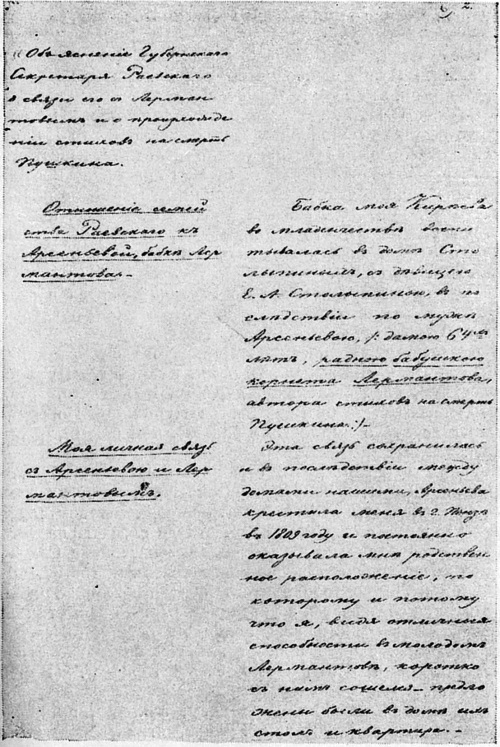 2.
«Объясненіе Губернскаго
Секретаря Раевскаго
о связи его съ Лерман
товымъ и о происхожде
ніи стиховъ на смерть
Пушкина.
Отношеніе семей
ства Раевскаго къ
Арсеньевой, бабкѣ Лер
мантова.
Бабка моя Кирѣева
во младенчествѣ воспи
тывалась въ домѣ Сто
лыпиныхъ, съ дѣвицею
Е. А. Столыпиною, въ по
слѣдствіи по мужѣ
Арсеньевою, /: дамою 64хъ
лѣтъ, родною бабушкою
корнета Лермантова,
автора стиховъ на смерть
Пушкина. :/
Моя личная связь
съ Арсеньевою и Лер
мантовымъ.
Эта связь сохранилась
и въ послѣдствіи между
домами нашими, Арсеньева
крестила меня въ г. Пензѣ
въ 1809 году и постоянно
оказывала мнѣ родствен
ное расположеніе, по
которому и потому
что я, видя отличныя
способности въ молодомъ
Лермантовѣ, коротко
съ нимъ сошелся – предло
жены были въ домѣ ихъ
столъ и квартира. –